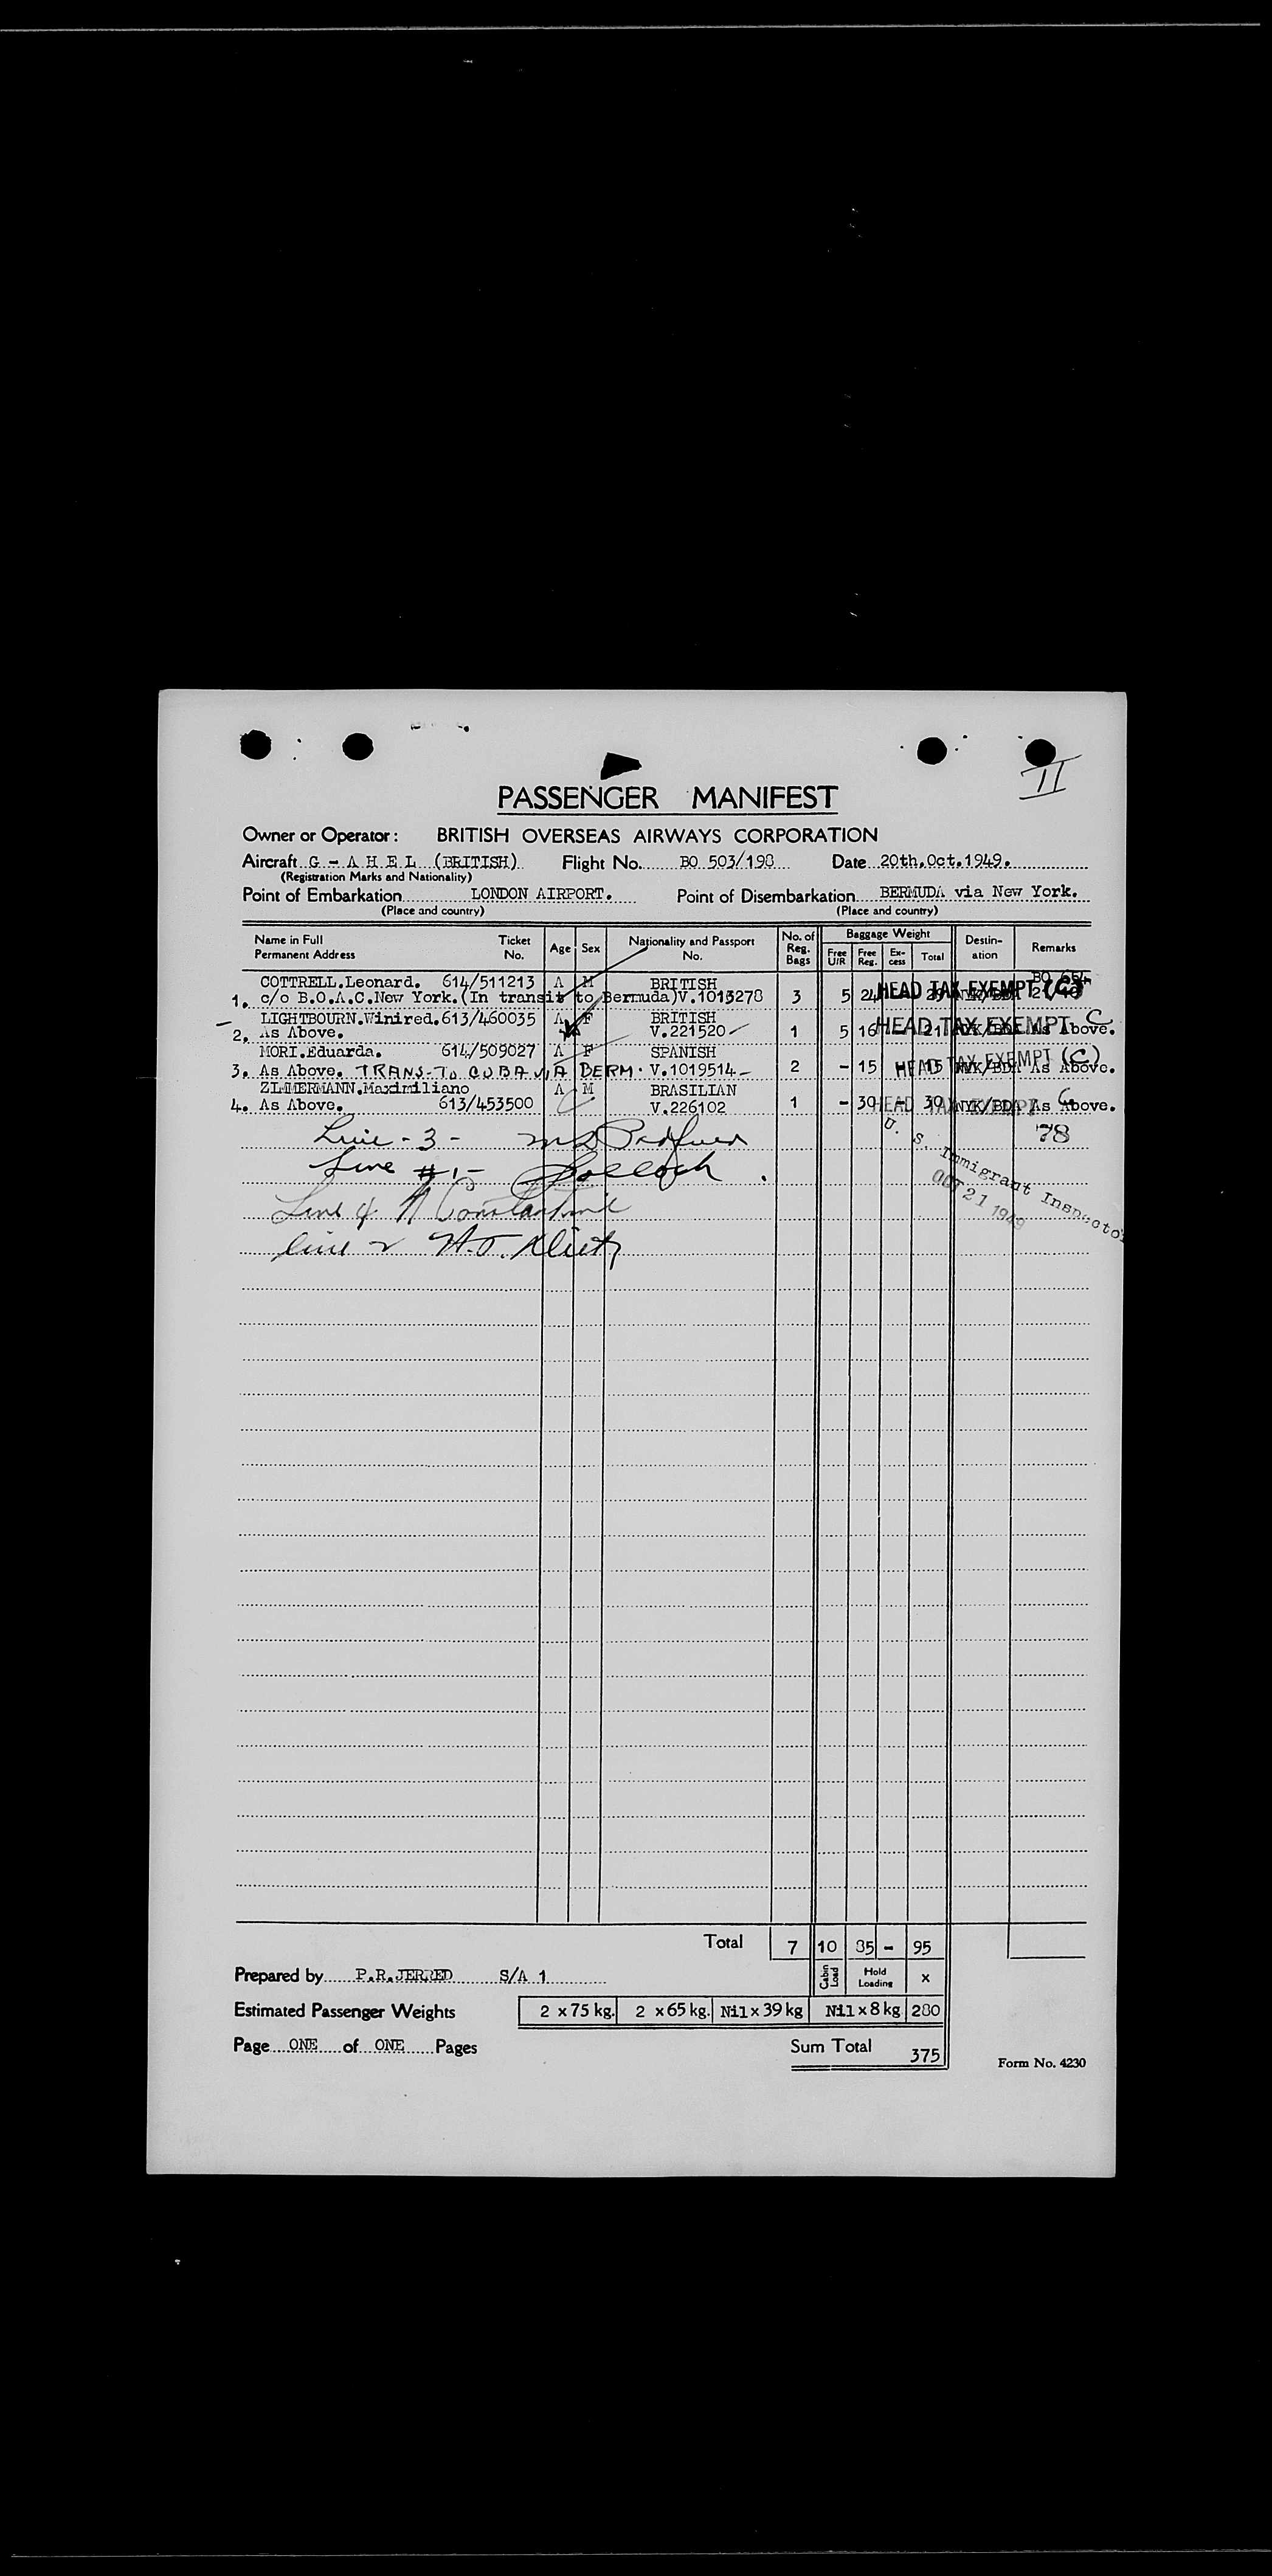 II
PASSENGER MANIFEST
Owner or Operator: BRITISH OVERSEAS AIRWAYS CORPORATION
Aircraft G - A H E L (BRITISH) Flight No. BO 503/198 Date 20th.Oct.1949.
(Registration Marks and Nationality)
Point of Embarkation LONDON AIRPORT. Point of Disembarkation BERMUDA via New York.
(Place and country) (Place and country)
Name in Full Permanent Address Ticket No. Age Sex Nationality and Passport No. No. of Reg. Bags Baggage Weight Free U/R Free Reg. Ex-cess Total Destin-ation Remarks
COTTRELL.Leonard. 614/511213 A M BRITISH
1. c/o B.O.A.C.New York.(In transit to Bermuda)V.1013278 3 5 24 HEAD TAX EXEMPT (C)
LIGHTBOURN.Winired.613/460035 A F BRITISH C
2. As Above. V.221520 1 5 16 21 HEAD TAX EXEMPT As Above.
MORI.Eduarda. 614/509027 A F SPANISH
3. As Above. TRANS-TO CUBA VIA BERM. V.1019514 2 - 15 15 HEAD TAX EXEMPT (C) NYK/BDA As Above.
ZIMMERMANN.Maximiliano A M BRASILIAN
4. As Above. 613/453500 V.226102 1 - 30 - 30 HEAD TAX EXEMPT NYK/BDA As Above. C
Line - 3 - 78
Line # 1 -
Line 4 Constantine
line 2
U. S. Immigrant Inspector
OCT 21 1949
Total 7 10 85 - 95
Prepared by P.R.JERRED S/A 1 Cabin Load Hold Loading x
Estimated Passenger Weights 2 x 75 kg. 2 x 65 kg. Nil x 39 kg Nil x 8 kg 280
Page ONE of ONE Pages Sum Total 375
Form No. 4230